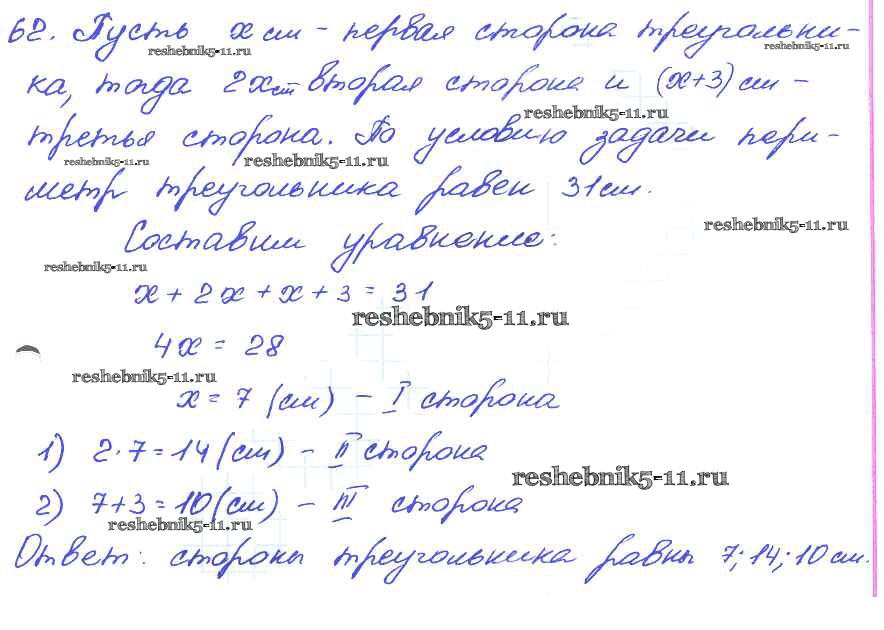 62. Пусть x см - первая сторона треугольни-
reshebnik5-11.ru reshebnik5-11.ru
ка, тогда 2x см вторая сторона и (x+3) см -
reshebnik5-11.ru
третья сторона. По условию задачи пери-
reshebnik5-11.ru reshebnik5-11.ru
метр треугольника равен 31 см.
reshebnik5-11.ru
Составим уравнение:
reshebnik5-11.ru
x + 2x + x + 3 = 31
reshebnik5-11.ru
4x = 28
reshebnik5-11.ru
x = 7 (см) - I сторона
1) 2·7=14 (см) - II сторона
reshebnik5-11.ru
2) 7+3=10 (см) - III сторона
reshebnik5-11.ru
Ответ: стороны треугольника равны 7; 14; 10 см.